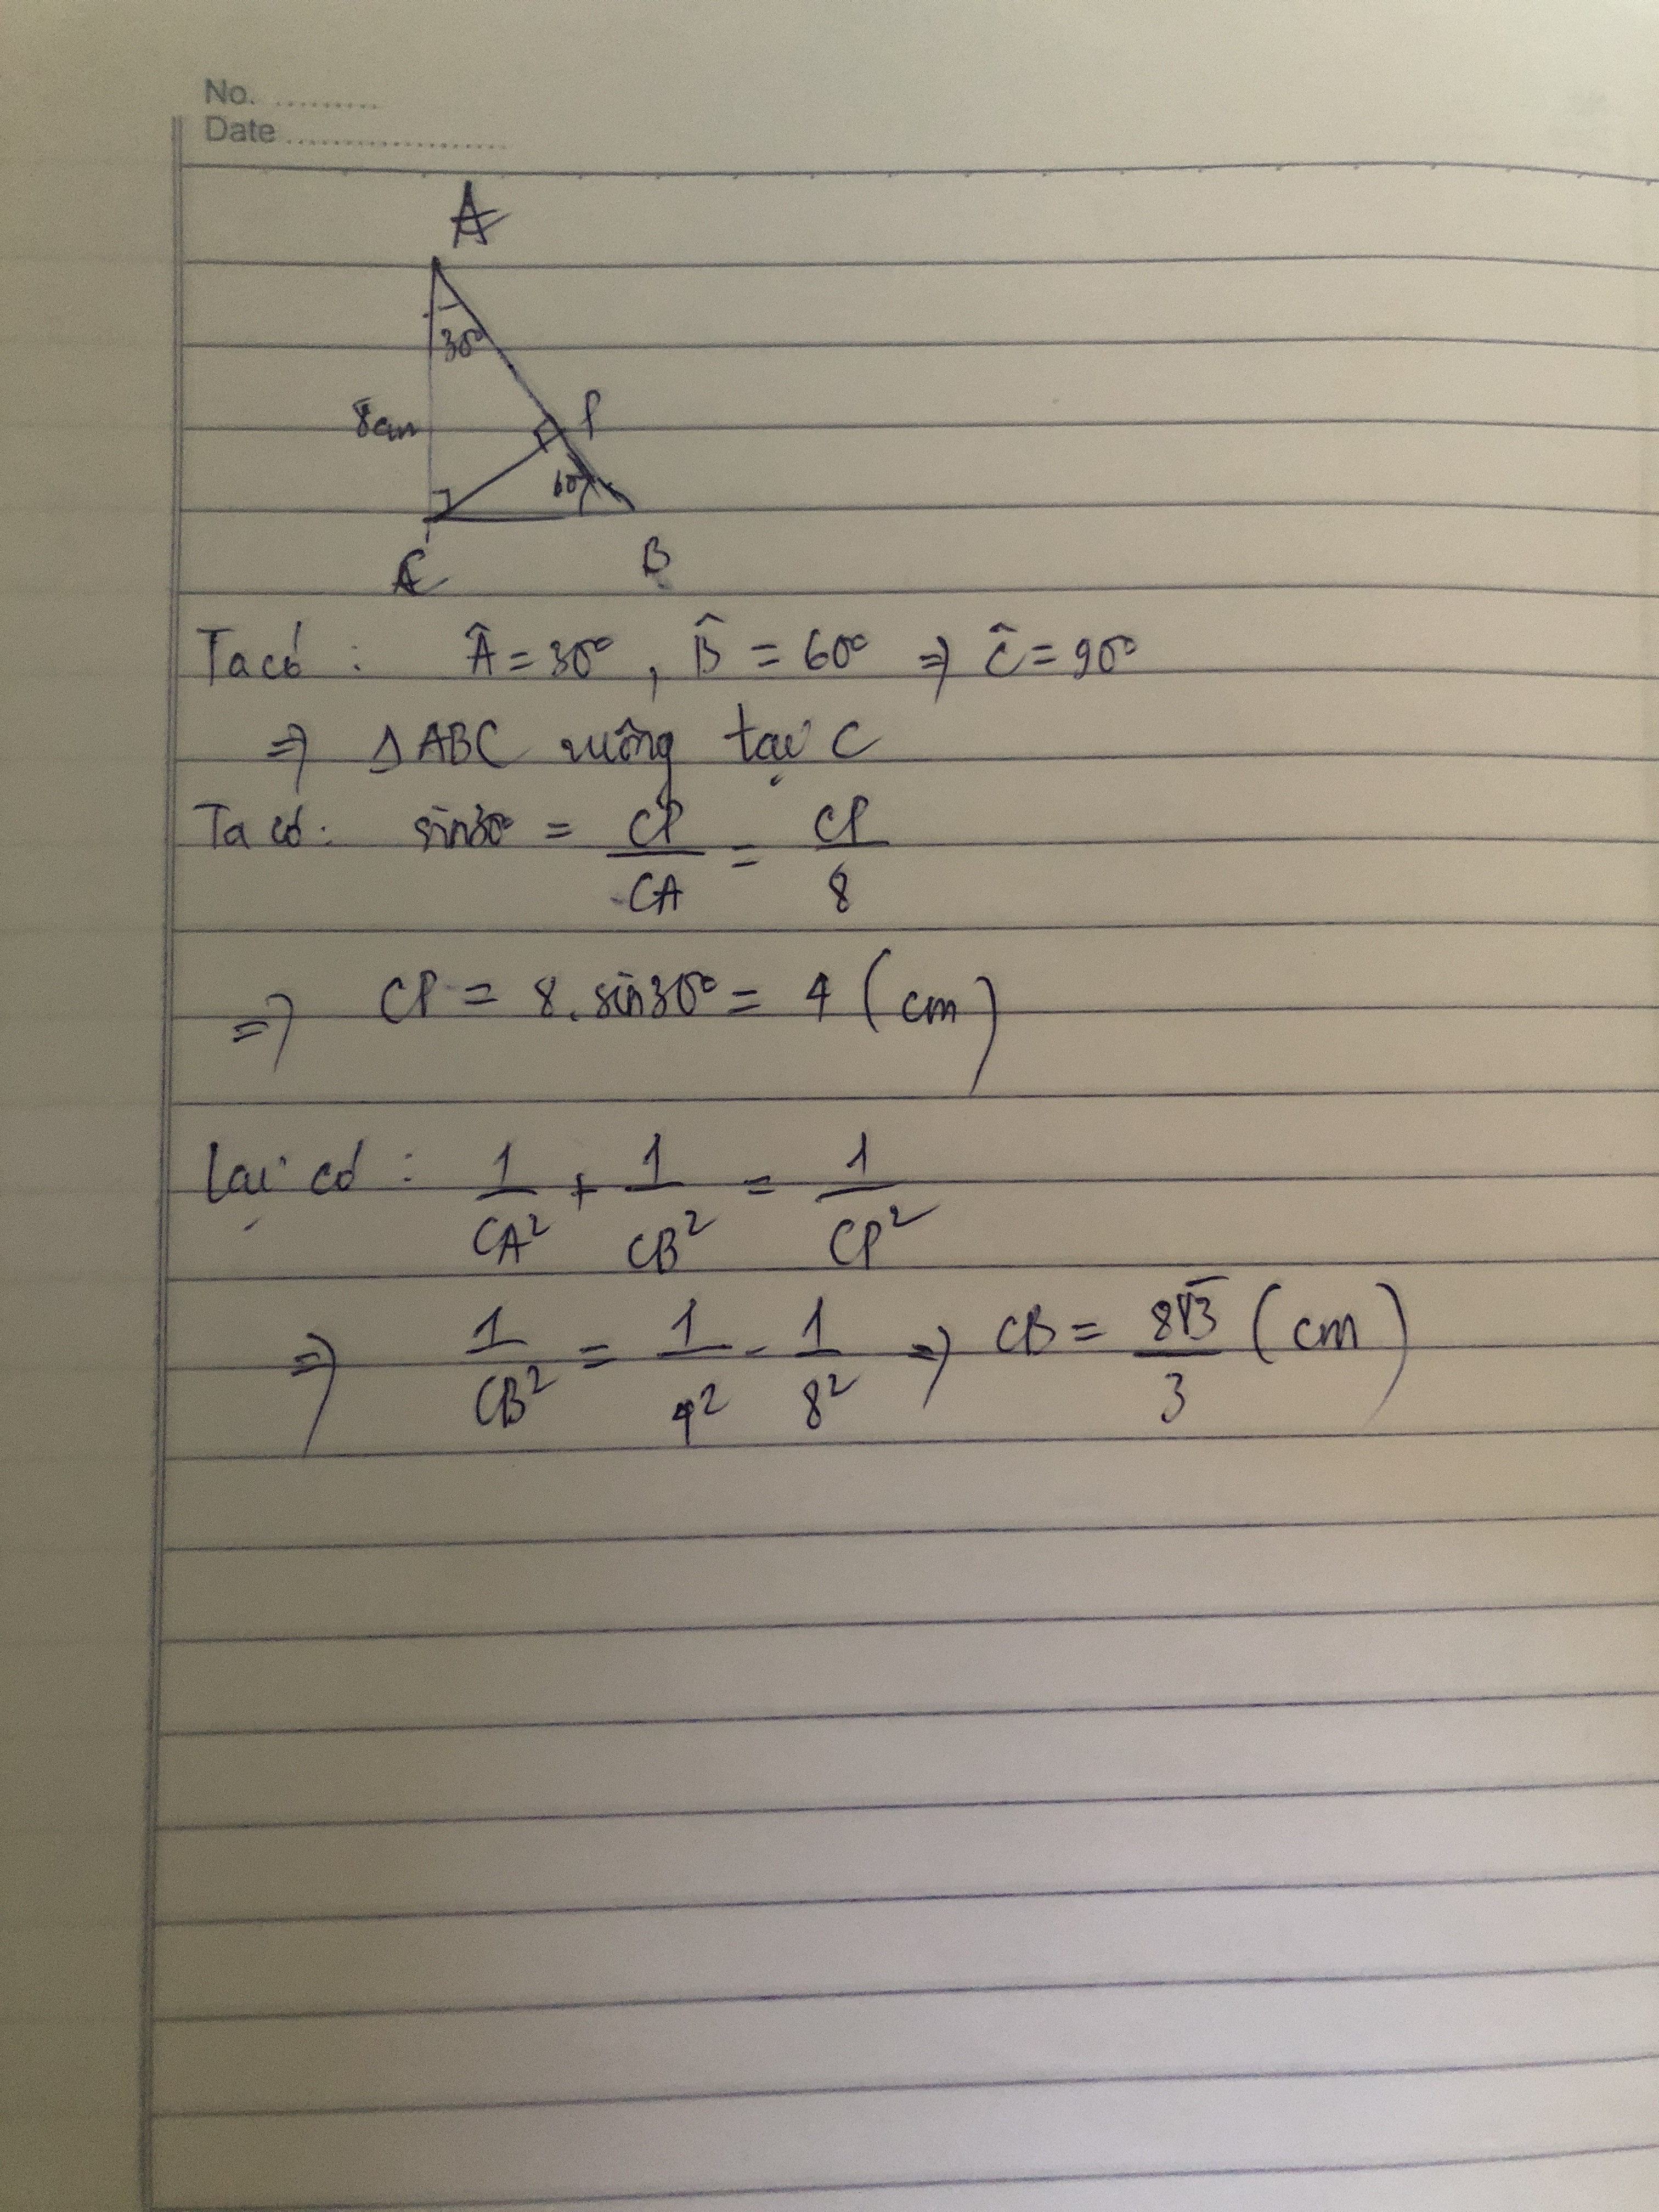 No. .........
Date ...................
A
30°
8cm
P
60°
C
B
Ta có : Â = 30° , B̂ = 60° => Ĉ = 90°
=> Δ ABC vuông tại C
Ta có : sin30° = CP/CA = CP/8
=> CP = 8.sin30° = 4 (cm)
Lại có : 1/CA² + 1/CB² = 1/CP²
=> 1/CB² = 1/4² - 1/8² => CB = 8√3/3 (cm)